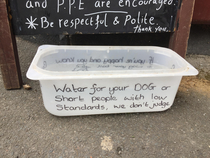 and P.P.E are encouraged.
* Be respectful & Polite.
Thank you...
Water for your DOG or
Short people with low
Standards, we don't judge